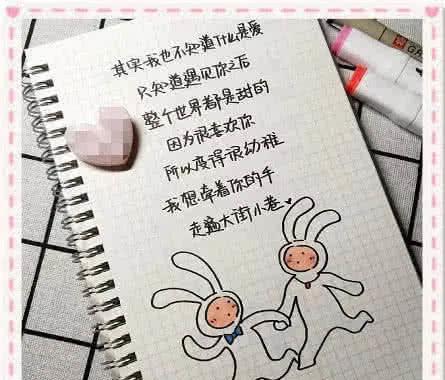 其实我也不知道什么是爱
只知道遇见你之后
整个世界都是甜的
因为很喜欢你
所以变得很幼稚
我想牵着你的手
走遍大街小巷